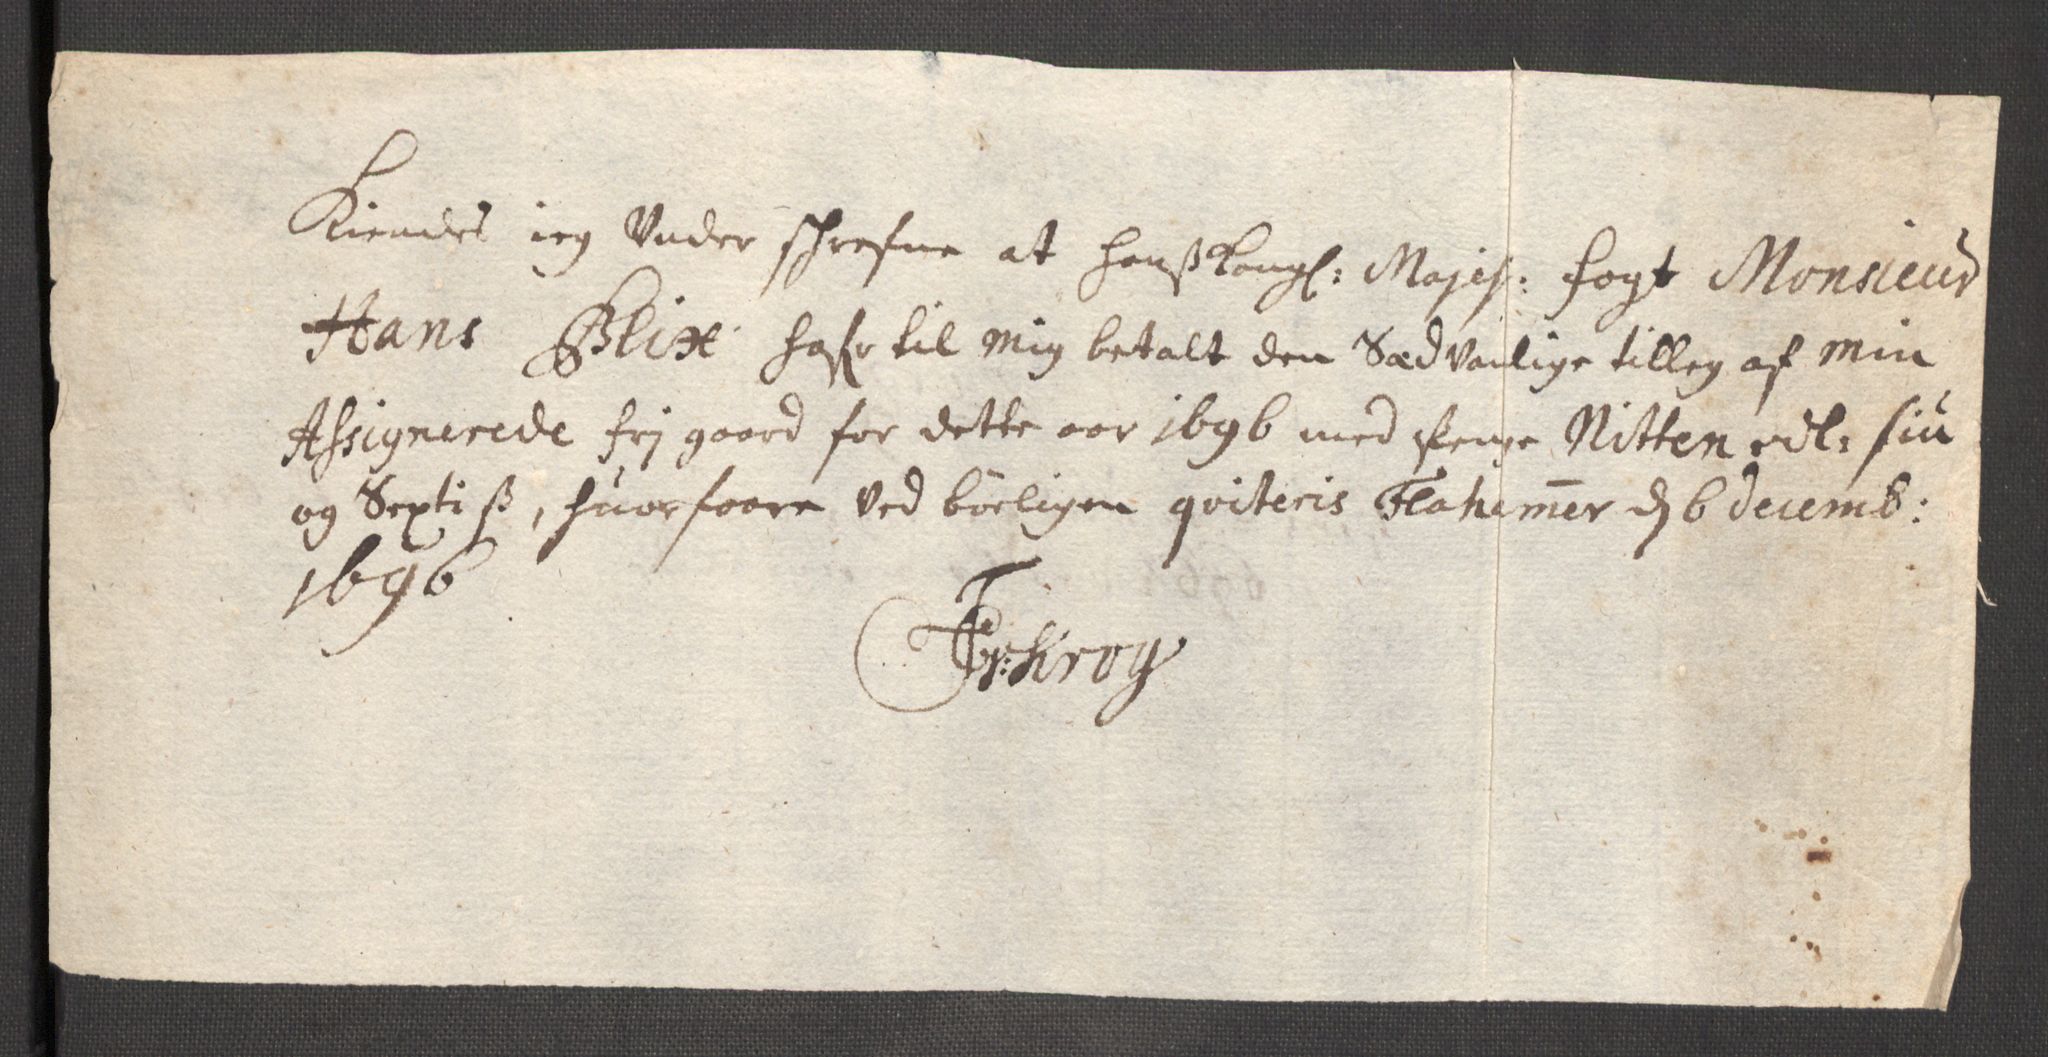 Kiendes ieg Underschrefne at Hanß Kongl: Majest: fogt Monsieur
Hans Blix hafr til mig betalt den Sædvanlige tilleg af min
Assignerede frj gaard for dette aar 1696 med penge Nitten rdl: siu
og Septi ß, huorfoore Ved börligen qviteris Flahamer d 6 decemb:
1696
Fr: Krog